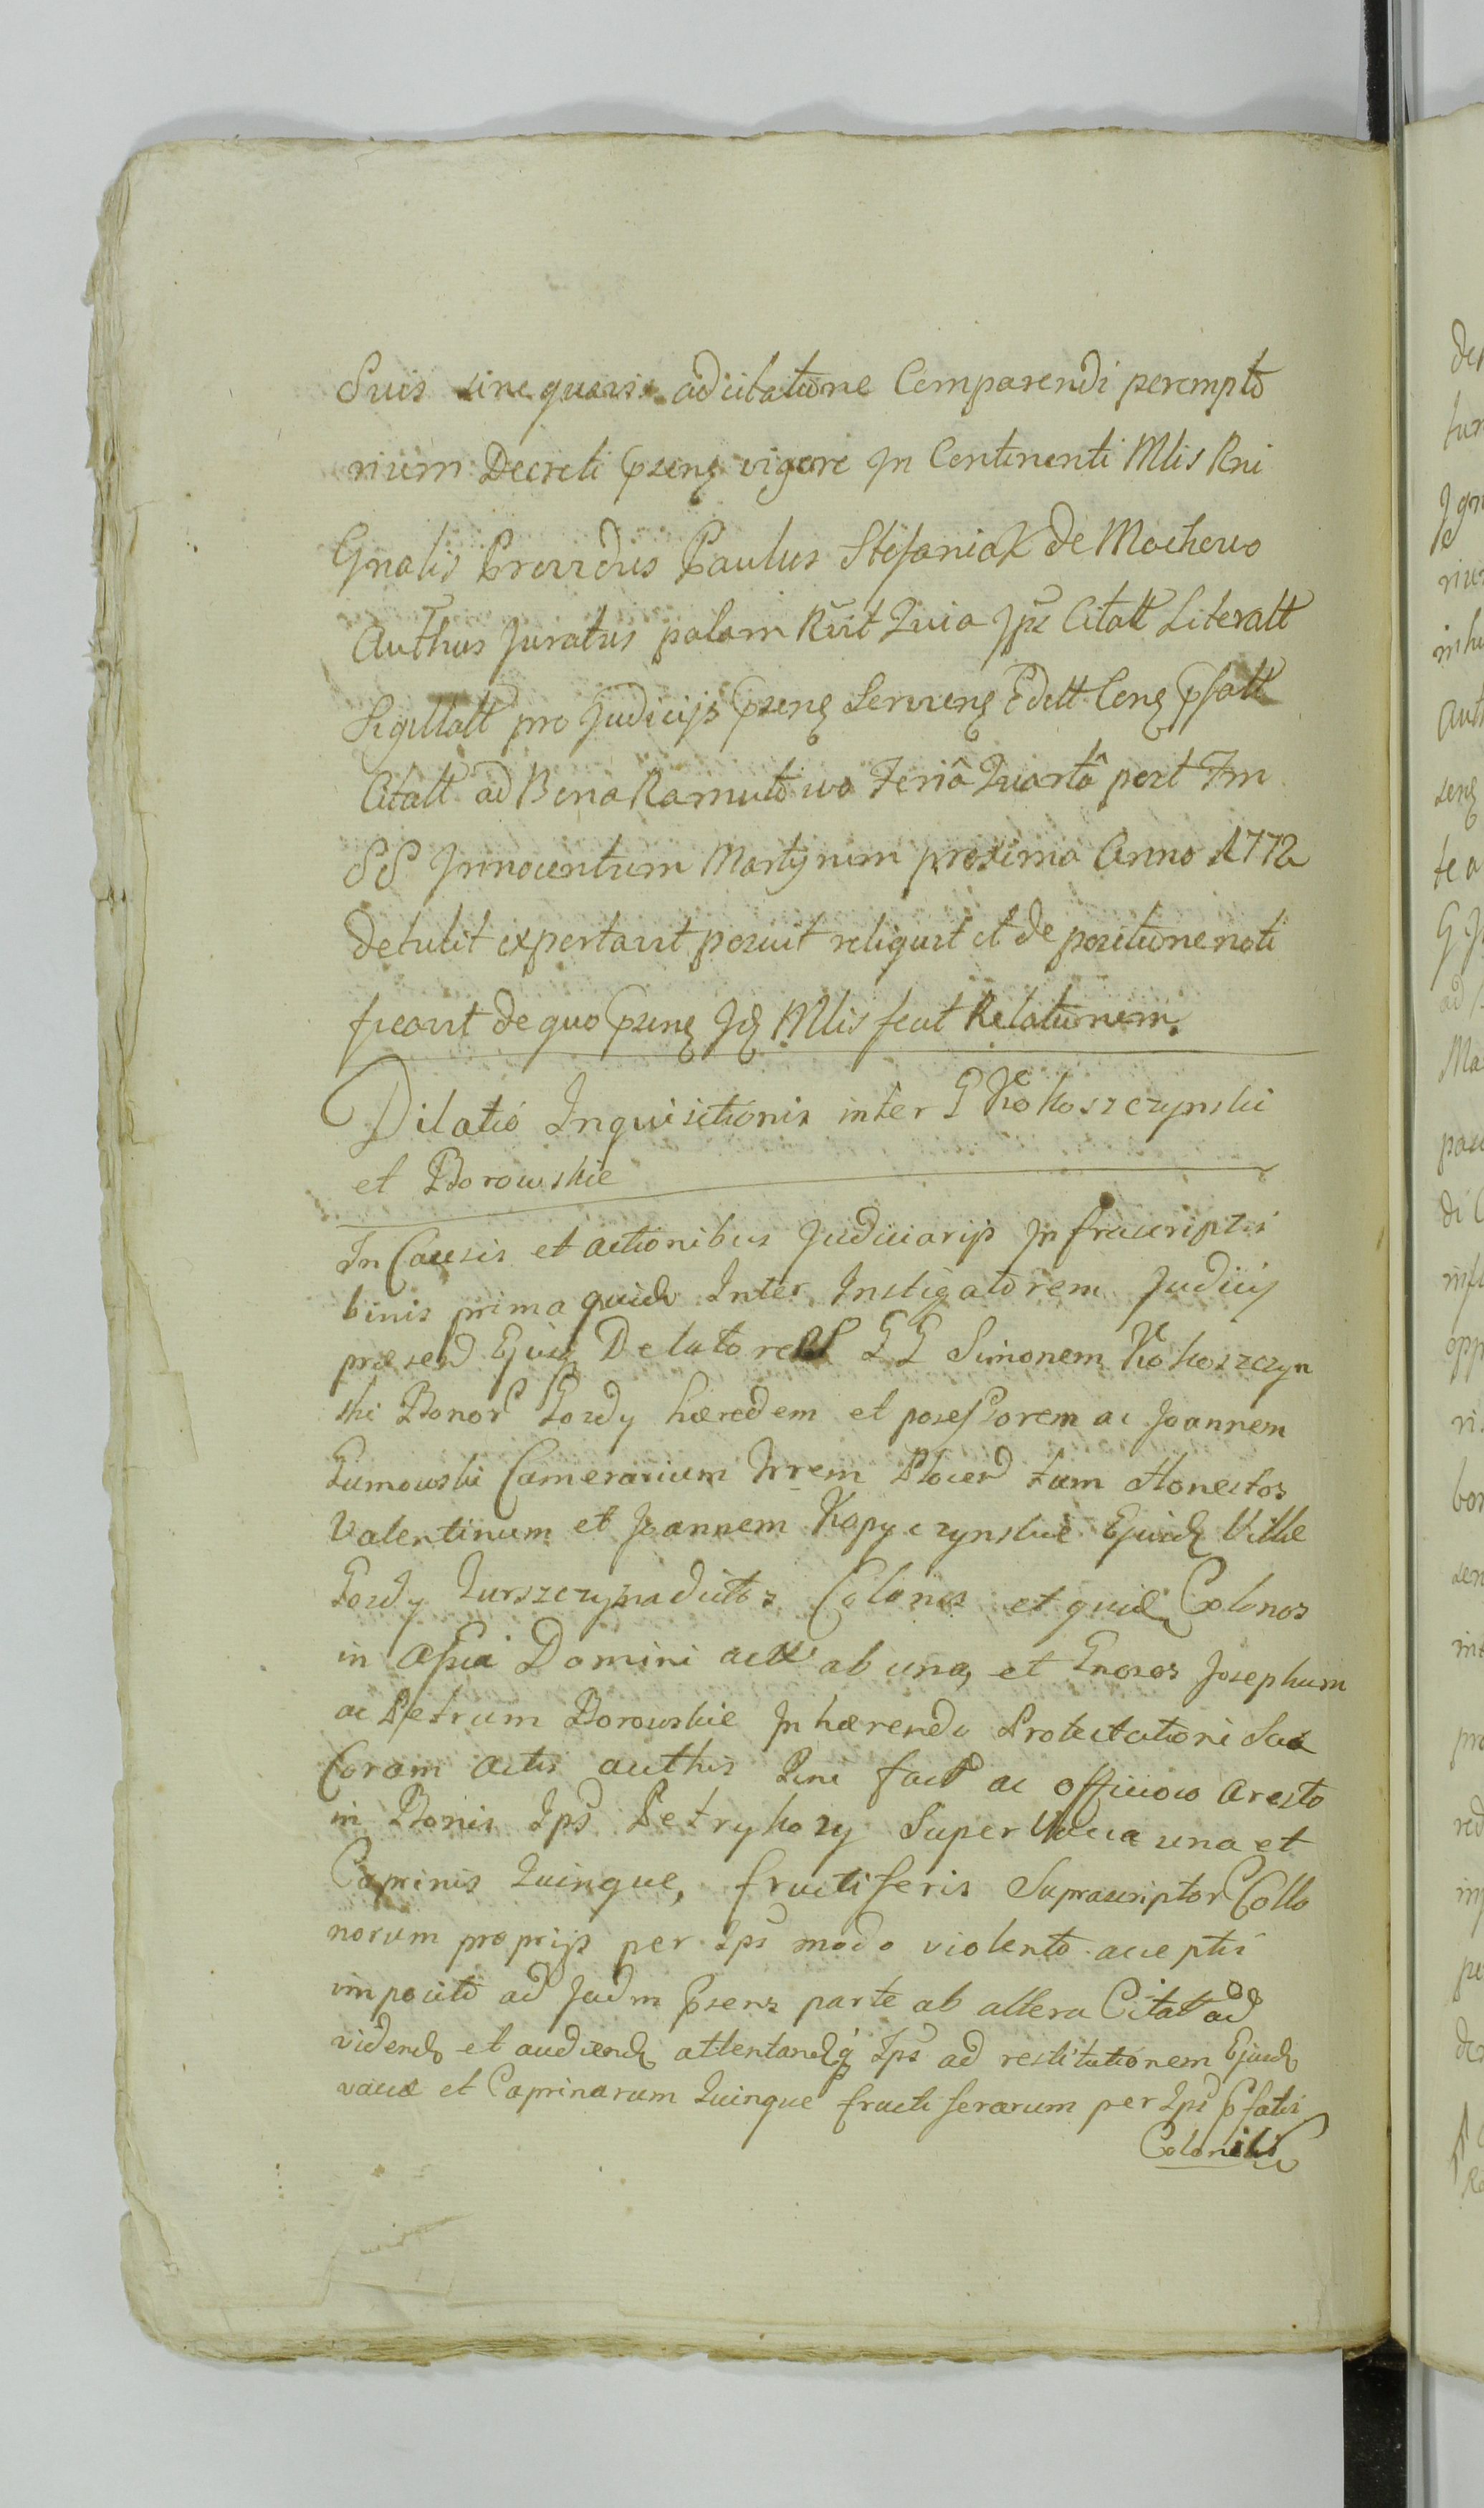 Suis sine quavis adcitatione Comparendi perempto
rium Decreti Psenę vigore In Continenti Mlis Rni
Gnalis Providus Paulus Stefaniak de Mochowo
Authus Juratus palam Rvit Quia Ipse Citatt Literatt
Sigillatt pro Judicijs Psenę Servienę Edett Conę Psatt
Citatt ad Bona Ramutowo Feriâ Quartâ post Fm
SS Innocentum Martyrum proxima Anno 1772
detulit exportavit posuit reliquit et de positione noti
ficavit de quo Psenę Idę Mlis fecit Relationem.
Dilatió Inquisitionis inter G Kokoszczynski
et Borowskie
In Causis et actionibus Judiciarijs Infrascriptis
binis prima quidę Inter Instigatorem Judicij
præsend Ejusę Delatores GG Simonem Kokoszczyn
ski Bonor Gozdy hæredem et possessorem ac Joannem
Gumowski Camerarium Trrem Plocen tum Honestos
Valentinum et Joannem Kopyczynskie Ejusdę Villæ
Gozdy Gurszczyzna dictos Colonos et quidę Colonos
in assia Domini act ab una, et Gnosos Josephum
ac Petrum Borowskie Inhærendo Protestationi Suæ
Coram Actis authis Pini fact ac officioso Aresto
in Bonis Ips Petrykozy Super Vacca una et
Caprinis Quinque, fructiferis Suprascriptor Collo
norum proprijs per Ips modo violento acceptis
imposito ad Judm Psens parte ab altera Citat ad
videndę et audiendę attentandęq Ips ad restitutionem Ejusdę
vaccæ et Caprinarum Quinque fructiferarum per Ips Psatis
Colonis